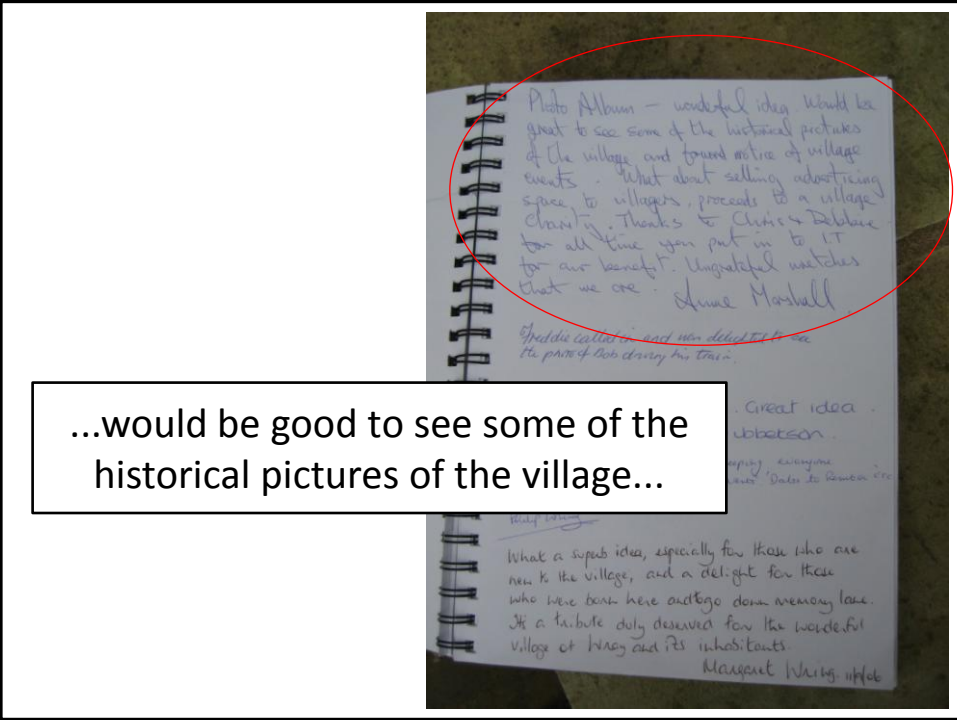 Photo Album – wonderful idea. Would be
great to see some of the historical pictures
of the village and forward notice of village
events. What about selling advertising
space to villagers, proceeds to a village
charity. Thanks to Chris & Debbie
for all time you put in to I.T
for our benefit. Ungrateful wretches
that we are. Anne Marshall
Freddie called in and was delighted to see
the photo of Bob driving his train.
...would be good to see some of the
historical pictures of the village...
. Great idea.
everyone
Dates to Remember etc
What a superb idea, especially for those who are
new to the village, and a delight for those
who were born here and to go down memory lane.
It's a tribute duly deserved for the wonderful
village of Wray and its inhabitants.
Margaret